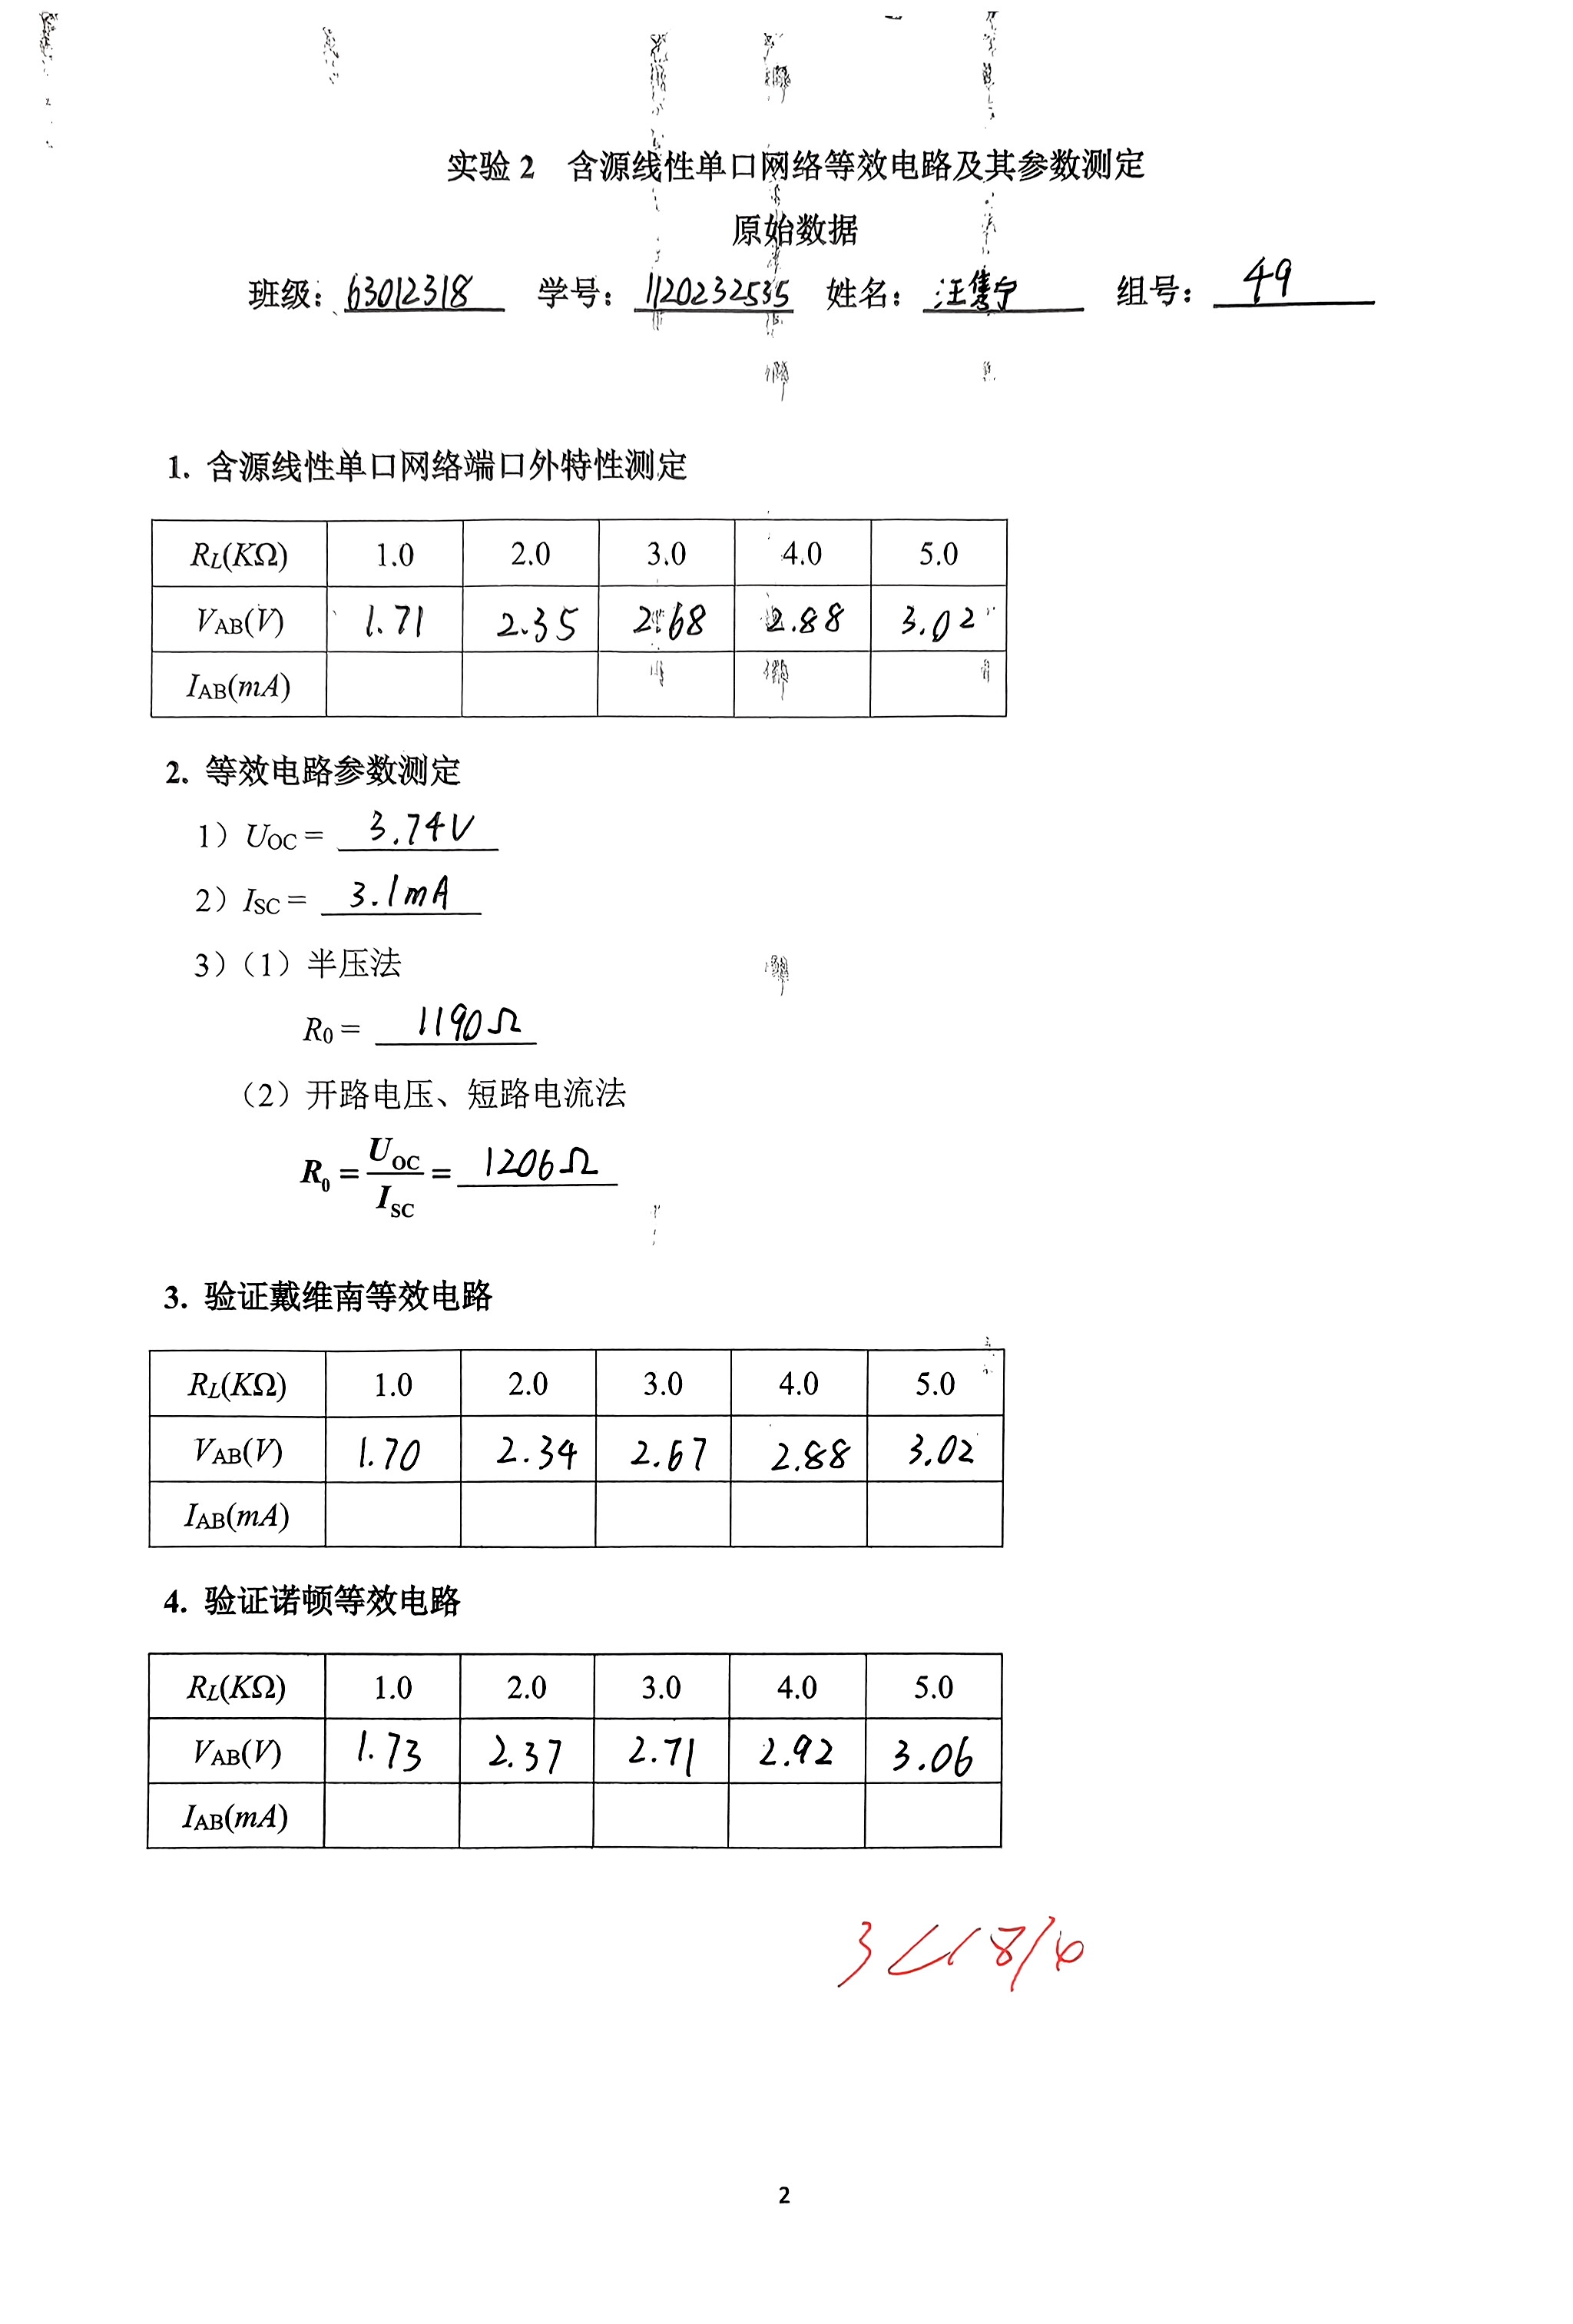 实验 2 含源线性单口网络等效电路及其参数测定
原始数据
班级: 63012318 学号: 1120232535 姓名: 汪隽宁 组号: 49
1. 含源线性单口网络端口外特性测定
RL(KΩ) 1.0 2.0 3.0 4.0 5.0
VAB(V) 1.71 2.35 2.68 2.88 3.02
IAB(mA)
2. 等效电路参数测定
1）UOC = 3.74V
2）ISC = 3.1mA
3）（1）半压法
R0 = 1190Ω
（2）开路电压、短路电流法
R0 = UOC/ISC = 1206Ω
3. 验证戴维南等效电路
RL(KΩ) 1.0 2.0 3.0 4.0 5.0
VAB(V) 1.70 2.34 2.67 2.88 3.02
IAB(mA)
4. 验证诺顿等效电路
RL(KΩ) 1.0 2.0 3.0 4.0 5.0
VAB(V) 1.73 2.37 2.71 2.92 3.06
IAB(mA)
2